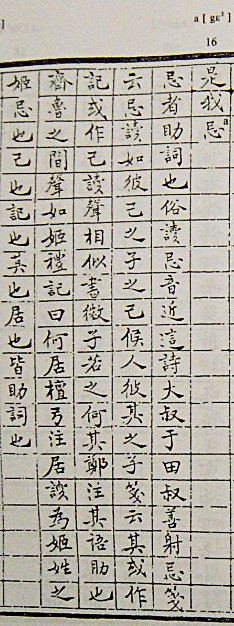 ]
a [ gɛ³ ]
16
是我忌a
忌者助詞也俗讀忌音近這詩大叔于田叔善射忌箋
云忌讀如彼己之子之己候人彼其之子箋云其或作
記或作己讀聲相似書微子若之何其鄭注其語助也
齊魯之間聲如姬禮記曰何居檀弓注居讀為姬姓之
姬忌也己也記也其也居也皆助詞也